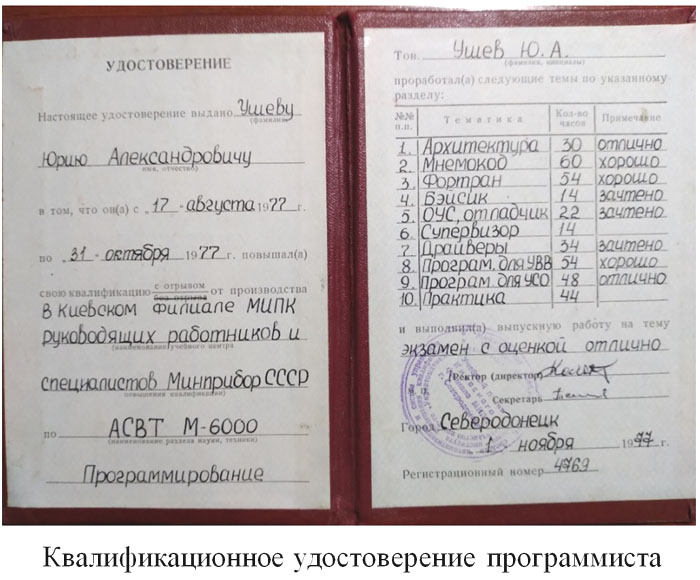 УДОСТОВЕРЕНИЕ
Настоящее удостоверение выдано Ушеву
(фамилия)
Юрию Александровичу
имя, отчество)
в том, что он(а) с „17 - августа 1977 г.
по „31 - октября 1977 г. повышал(а)
свою квалификацию с отрывом без отрыва от производства
в Киевском филиале МИПК
руководящих работников и
(наименование учебного центра
специалистов Минприбор СССР
повышения квалификации)
по АСВТ М-6000
(наименование раздела науки, техники)
Программирование
Тов. Ушев Ю. А.
(фамилия, инициалы)
проработал(а) следующие темы по указанному
разделу:
№№ п.п. Тематика Кол-во часов Примечание
1. Архитектура 30 отлично
2. Мнемокод 60 хорошо
3. Фортран 54 хорошо
4. Бэйсик 14 зачтено
5. ОУС, отладчик 22 зачтено
6. Супервизор 14
7. Драйверы 34 зачтено
8. Програм. для УВВ 54 хорошо
9. Програм. для УСО 48 отлично
10. Практика 44
и выполнил(а) выпускную работу на тему
экзамен с оценкой отлично
Ректор (директор)
Секретарь
Город Северодонецк
1 - ноября 1977 г.
Регистрационный номер 4769
Квалификационное удостоверение программиста